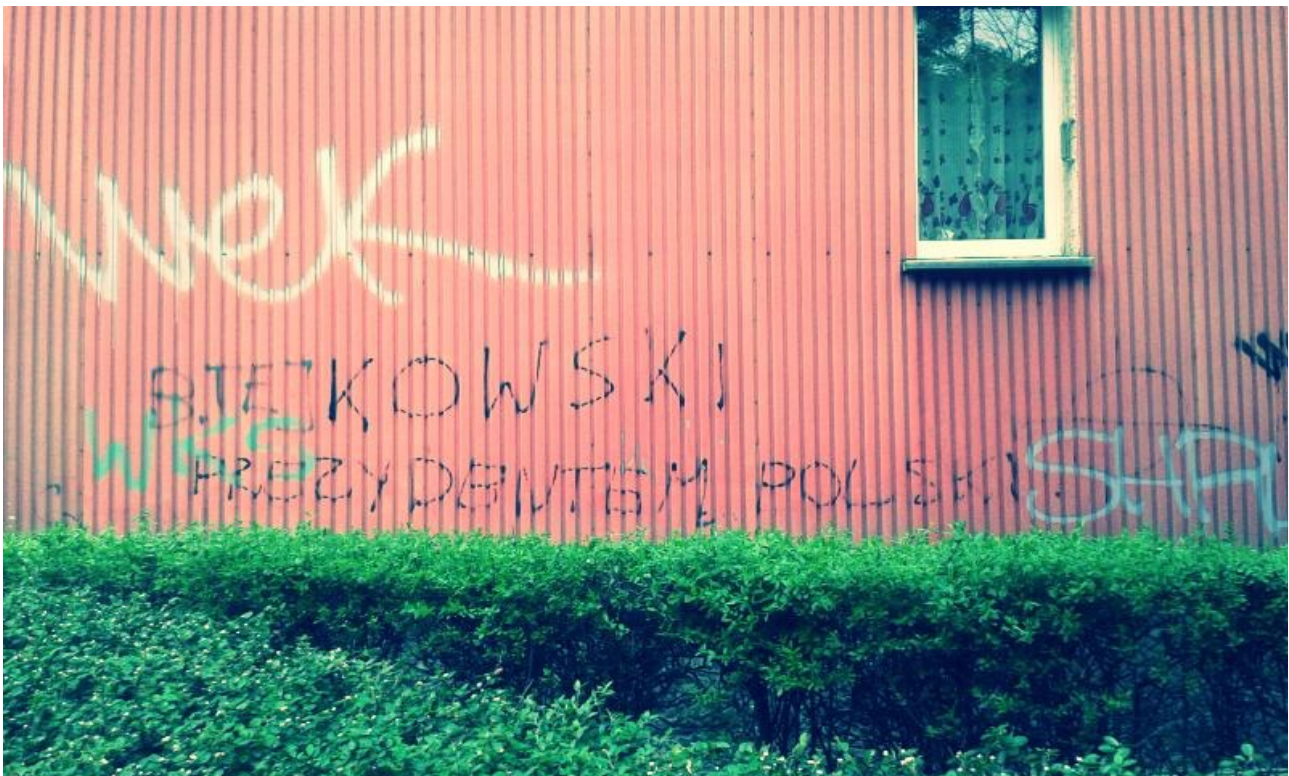 wek
BIEKOWSKI
WKS
PREZYDENTEM POLSKI.
SHA